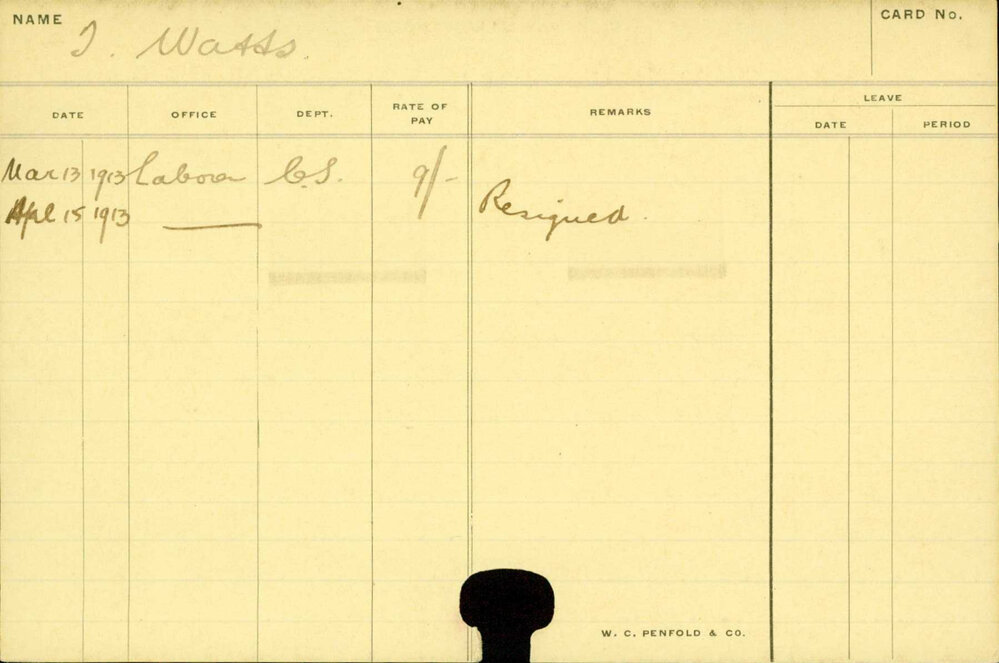 NAME
J. Watts.
CARD No.
DATE OFFICE DEPT. RATE OF PAY REMARKS LEAVE
DATE PERIOD
Mar 13 1913 Laborer C.S. 9/-
Apl 15 1913 —— Resigned.
W. C. PENFOLD & CO.